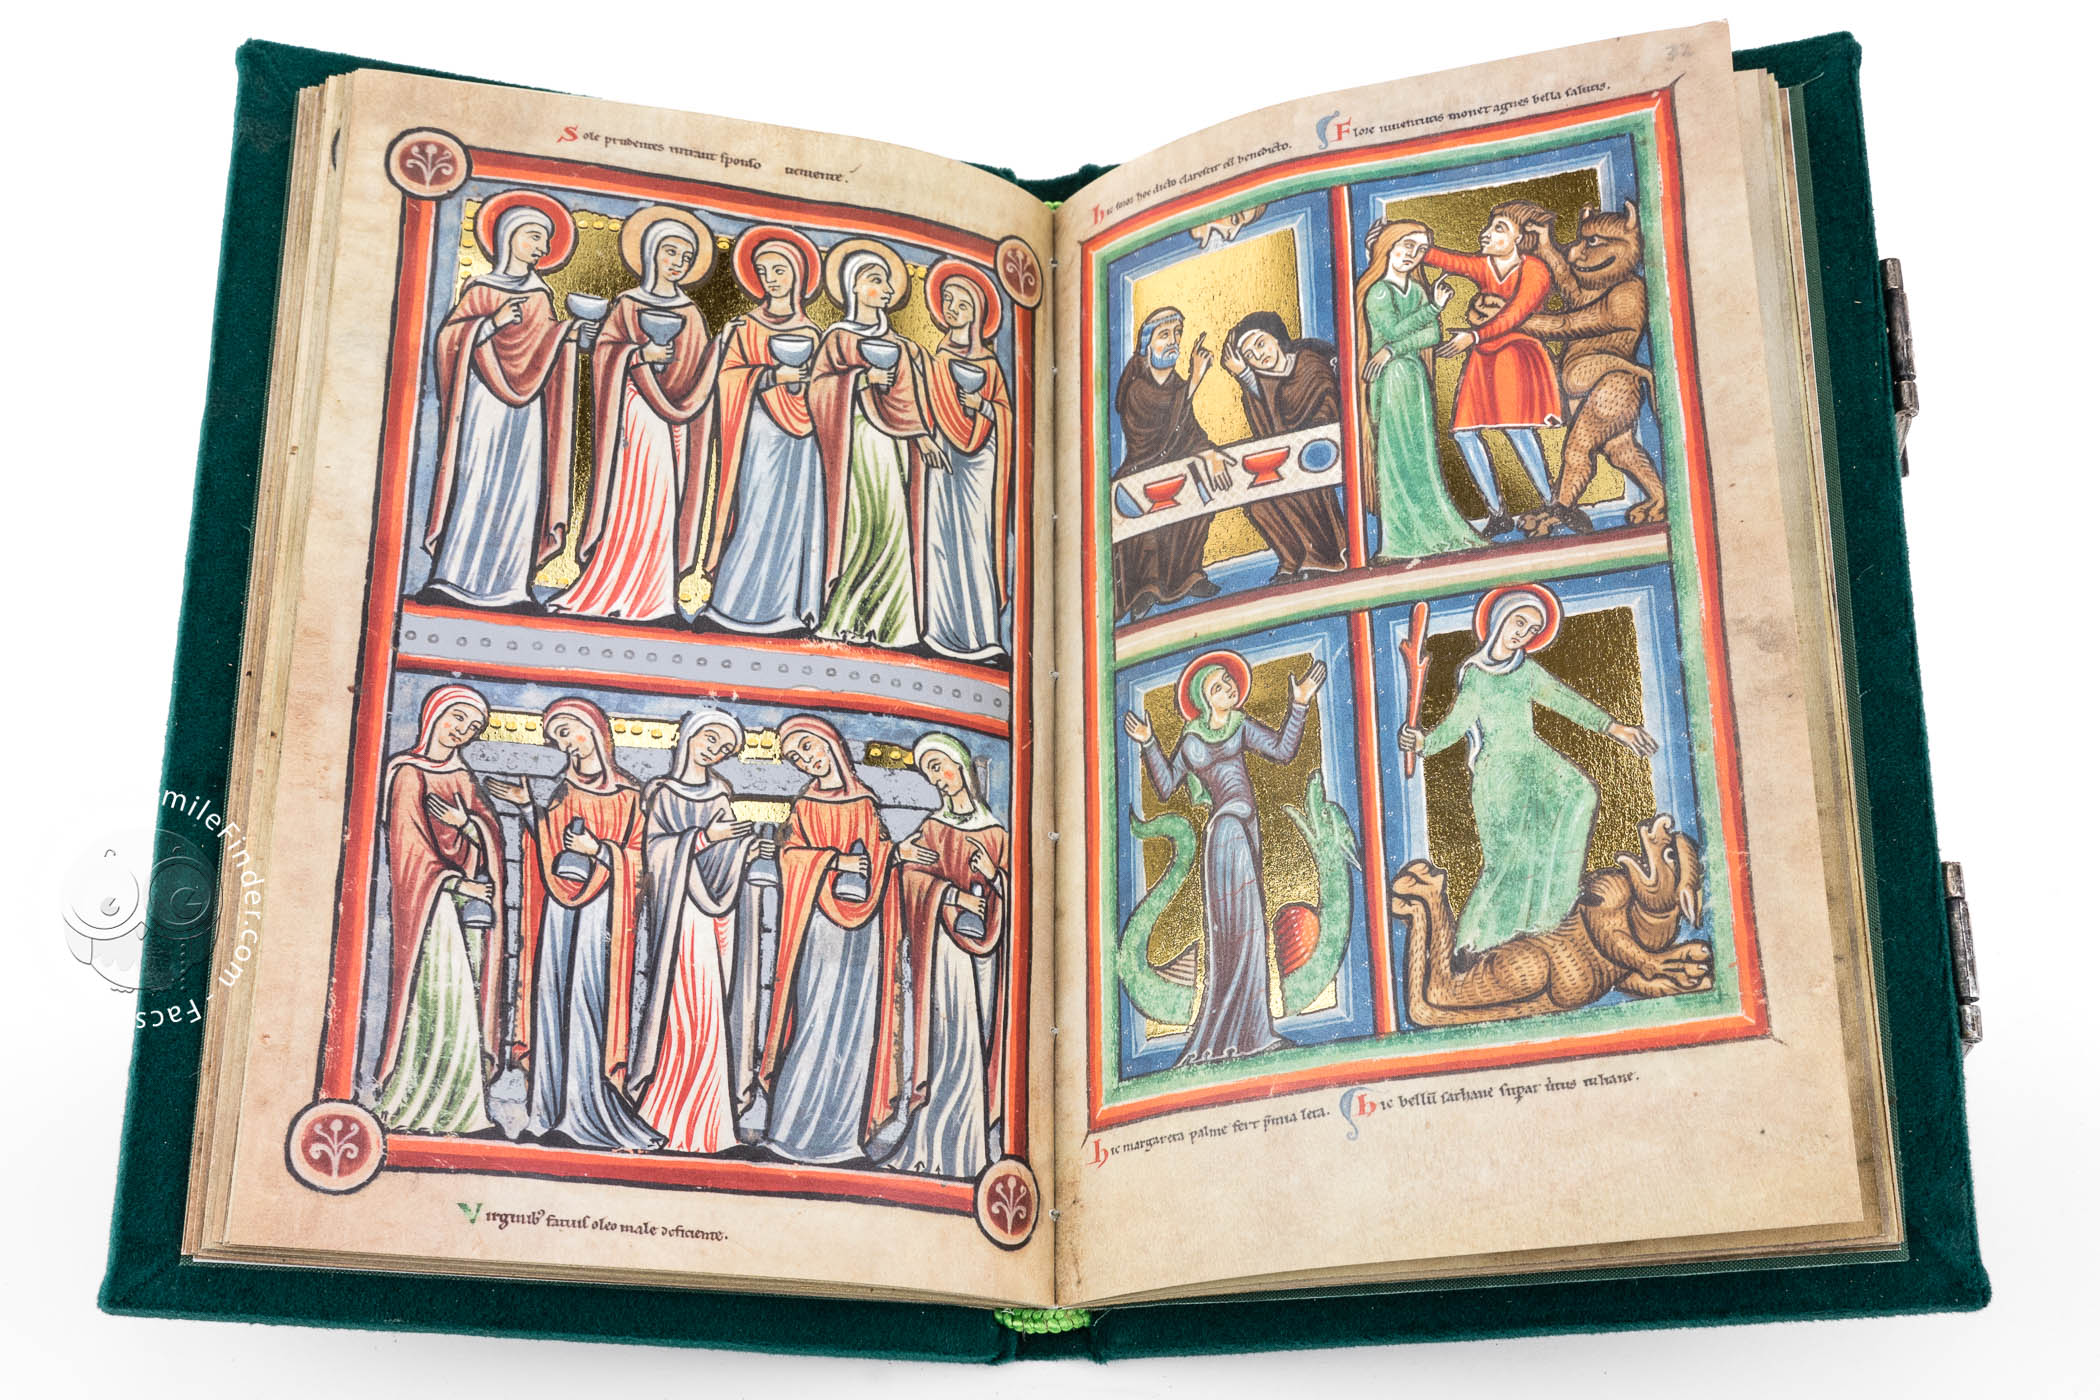 Sole prudentes intrant sponso ueniente.
Virginib⁹ fatuis oleo male deficiente.
32
hic mos hoc dicto clarescit est benedicto.
Flore iuuentutis monet agnes bella salutis.
hic margareta palme fert p̄mia leta.
hic bellū sathane sup̄at uirtus iuliane.
FacsimileFinder.com